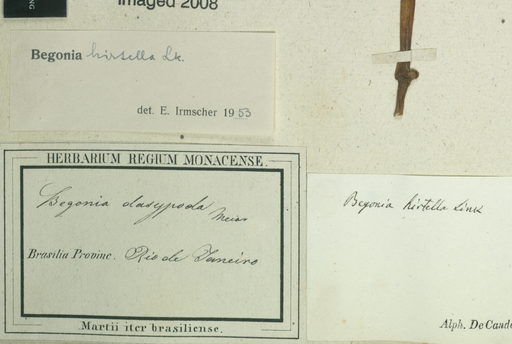 NG
Imaged 2008
Begonia hirtella Lk.
det. E. Irmscher 1953
HERBARIUM REGIUM MONACENSE.
Begonia dasypoda
Brasilia Provinc. Rio de Janeiro
Martii iter brasiliense.
Begonia hirtella Link
Alph. De Cando